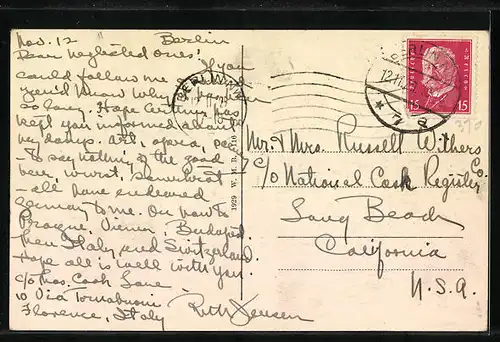 Nov. 12 Berlin
Dear neglected ones! If you
could follow me around
you'd know why I've been
so lazy. Hope Curtiss has
kept you informed about
my doings. Art, opera,
- to say nothing of the good
beer, wurst, sauerkraut
- all have endeared
Germany to me. On now to
Prague, Vienna, Budapest
then Italy and Switzerland.
Hope all is well with you.
c/o Thos. Cook & Sons
10 Via Tornabuoni
Florence, Italy
Ruth Jensen
1929 W. M. B.
BERLIN
15 15
Mr. & Mrs. Russell Withers
c/o National Cash Register Co.
Long Beach
California
U.S.A.